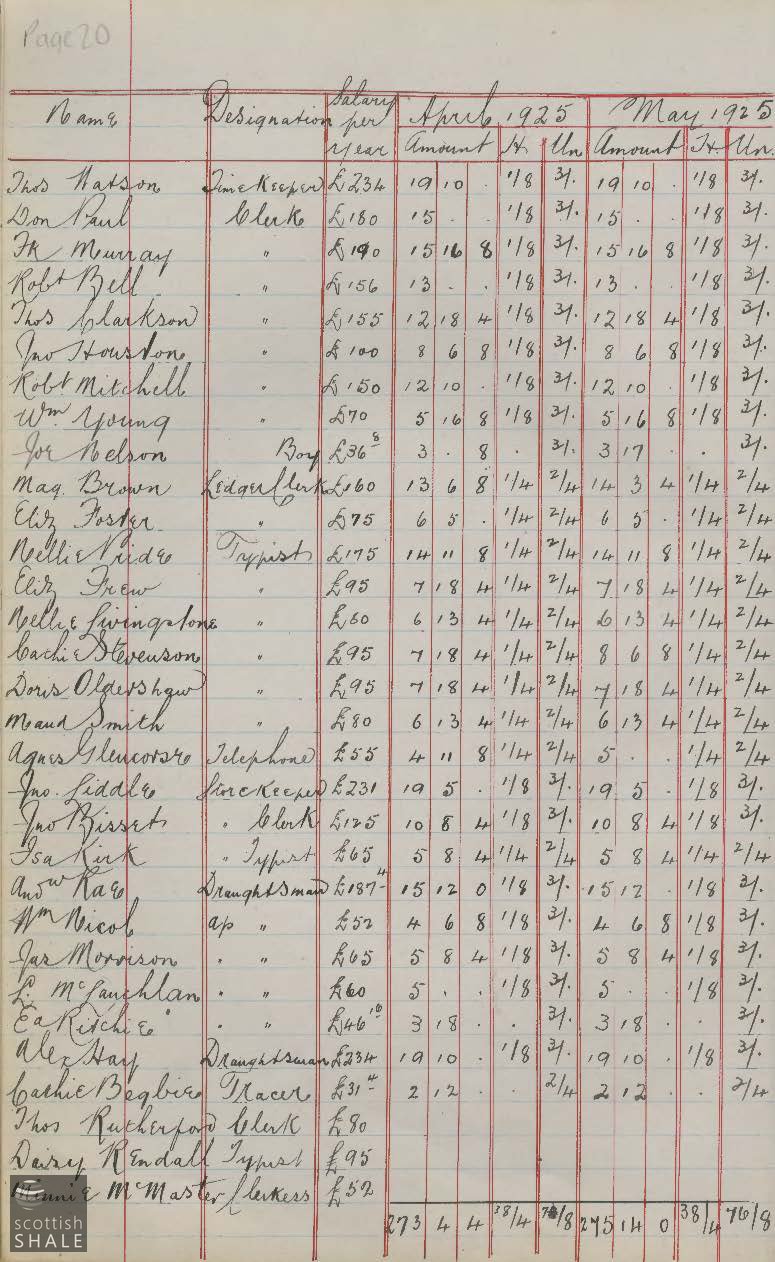 Page 20
Name Designation Salary per year April 1925 May 1925
Amount H. Un Amount H. Un.
Thos Watson Timekeeper £234 19 10 . 1/8 3/. 19 10 . 1/8 3/.
Don Paul Clerk £180 15 . . 1/8 3/. 15 . . 1/8 3/.
Fk Murray " £190 15 16 8 1/8 3/. 15 16 8 1/8 3/.
Robt Bell " £156 13 . . 1/8 3/. 13 . . 1/8 3/.
Thos Clarkson " £155 12 18 4 1/8 3/. 12 18 4 1/8 3/.
Jno Houston " £100 8 6 8 1/8 3/. 8 6 8 1/8 3/.
Robt Mitchell " £150 12 10 . 1/8 3/. 12 10 . 1/8 3/.
Wm Young " £70 5 16 8 1/8 3/. 5 16 8 1/8 3/.
Joe Nelson Boy £36 8 3 . 8 . 3/. 3 17 . . 3/.
Mag. Brown Ledger Clerk £160 13 6 8 1/4 2/4 14 3 4 1/4 2/4
Eliz Foster " £75 6 5 . 1/4 2/4 6 5 . 1/4 2/4
Nellie Typist £175 14 11 8 1/4 2/4 14 11 8 1/4 2/4
Eliz Frew " £95 7 18 4 1/4 2/4 7 18 4 1/4 2/4
Nellie Livingstone " £80 6 13 4 1/4 2/4 6 13 4 1/4 2/4
Cathie Stevenson " £95 7 18 4 1/4 2/4 8 6 8 1/4 2/4
Doris Oldershaw " £95 7 18 4 1/4 2/4 7 18 4 1/4 2/4
Maud Smith " £80 6 13 4 1/4 2/4 6 13 4 1/4 2/4
Agnes Glencorse Telephone £55 4 11 8 1/4 2/4 5 . . 1/4 2/4
Jno. Liddle Storekeeper £231 19 5 . 1/8 3/. 19 5 . 1/8 3/.
Jno Bisset " Clerk £125 10 8 4 1/8 3/. 10 8 4 1/8 3/.
Isa Kirk " Typist £65 5 8 4 1/4 2/4 5 8 4 1/4 2/4
Andw Rae Draughtsman £187 4 15 12 0 1/8 3/. 15 12 . 1/8 3/.
Wm Nicol ap " £52 4 6 8 1/8 3/. 4 6 8 1/8 3/.
Jas Morrison " " £65 5 8 4 1/8 3/. 5 8 4 1/8 3/.
L. McLauchlan " " £60 5 . . 1/8 3/. 5 . . 1/8 3/.
Ed Ritchie " " £46 16 3 18 . . 3/. 3 18 . . 3/.
Alex Hay Draughtsman £234 19 10 . 1/8 3/. 19 10 . 1/8 3/.
Cathie Begbie Tracer £31 4 2 12 . . 2/4 2 12 . . 2/4
Thos Rutherford Clerk £80
Daisy Rendall Typist £95
Minnie McMaster Clerkess £52
273 4 4 38/4 /8 275 14 0 38/4 76/8
scottish
SHALE